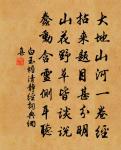 大地山河一卷經
拈來題目甚分明
山花野草皆談說
蠢動含靈側耳聽
白玉蟾清靜經詞典網
集